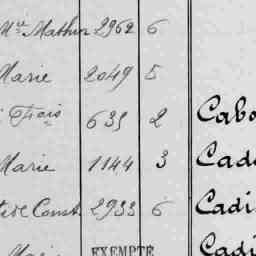 Mie Mathur 2962 6
Marie 2049 5
Fçois 635 2 Cabo
Marie 1144 3 Cado
Const. 2933 6 Cadi
Marie EXEMPTÉ Cadi